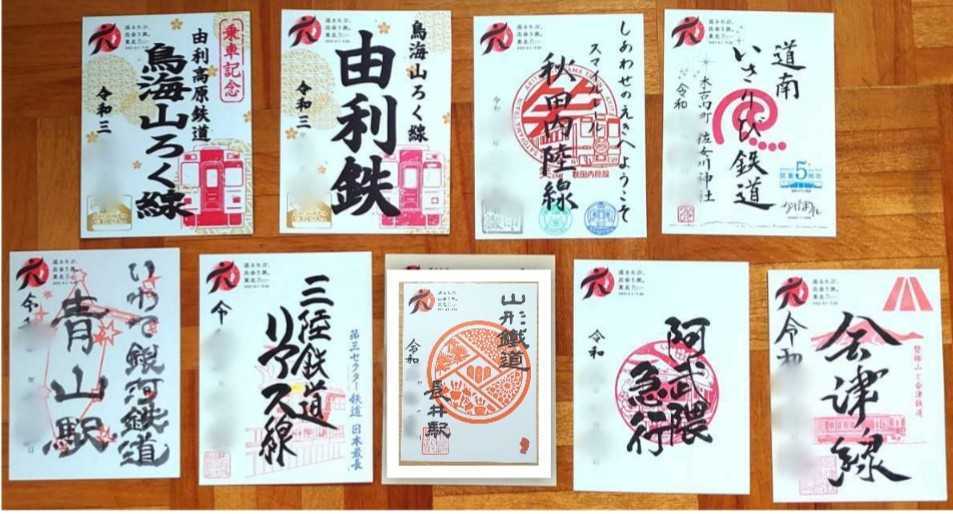 乗車記念
由利高原鉄道
鳥海山ろく線
令和三
鳥海山ろく線
由利鉄
令和三
しあわせのえきへようこそ
スマイルレール
秋田内陸線
令和
秋田内陸線
道南
いさりび鉄道
木古内町 佐女川神社
令和
開業5周年
いわて銀河鉄道
青山駅
令
三陸鉄道
リアス線
第三セクター鉄道 日本最長
令
山形鐵道
長井駅
令和
阿武隈
急行
令和
会津線
磐梯山と会津鉄道
令和